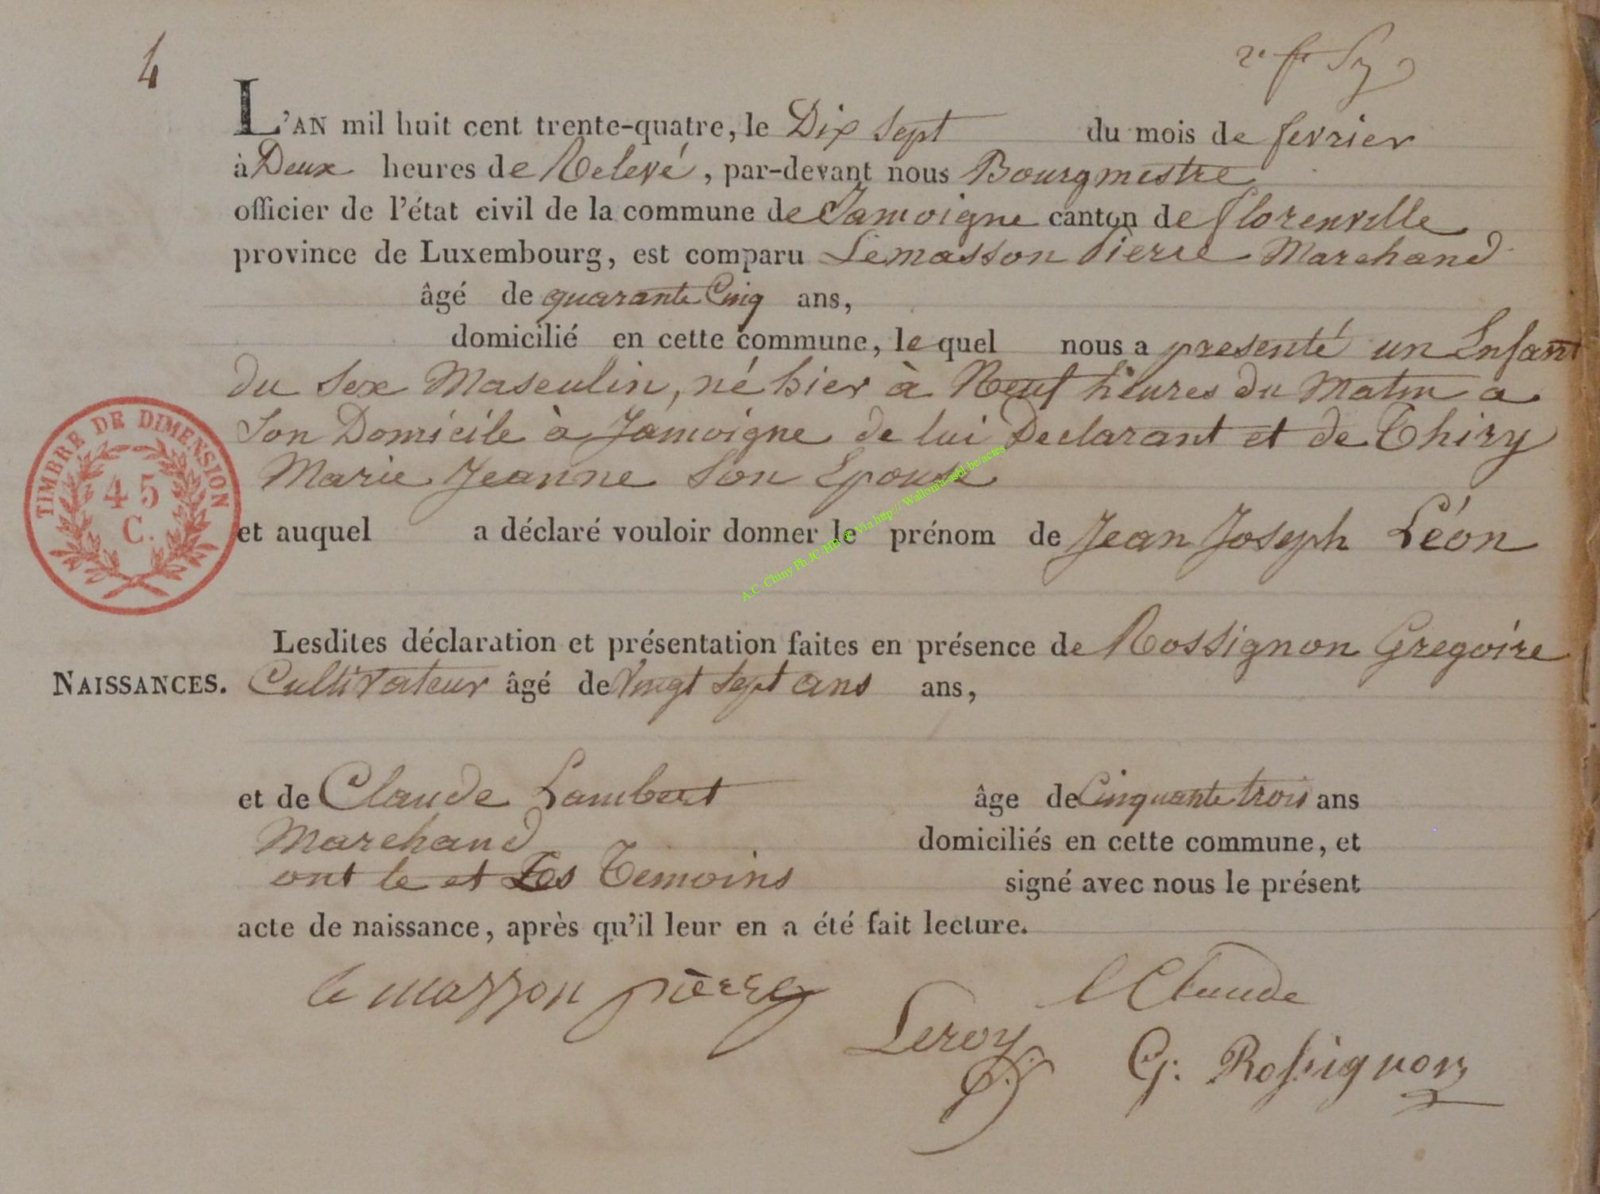 4
L'AN mil huit cent trente-quatre, le Dix Sept du mois de fevrier
à Deux heures de Relevé, par-devant nous Bourgmestre
officier de l'état civil de la commune de Jamoigne canton de florenville
province de Luxembourg, est comparu Lemasson Pierre Marchand
âgé de quarante Cinq ans,
domicilié en cette commune, le quel nous a presenté un Enfant
du Sex Masculin, né hier à Neuf heures du Matin a
Son Domicile à Jamoigne de lui Declarant et de Thiry
Marie Jeanne Son Epouse
et auquel a déclaré vouloir donner le prénom de Jean Joseph Léon
TIMBRE DE DIMENSION
45
C.
Lesdites déclaration et présentation faites en présence de Rossignon Gregoire
NAISSANCES. Cultivateur âgé de Vingt Sept ans ans,
et de Claude Lambert âge de Cinquante trois ans
Marchand domiciliés en cette commune, et
ont le et Les Temoins signé avec nous le présent
acte de naissance, après qu'il leur en a été fait lecture.
le masson pierre
l Claude
Leroy
G: Rossignon